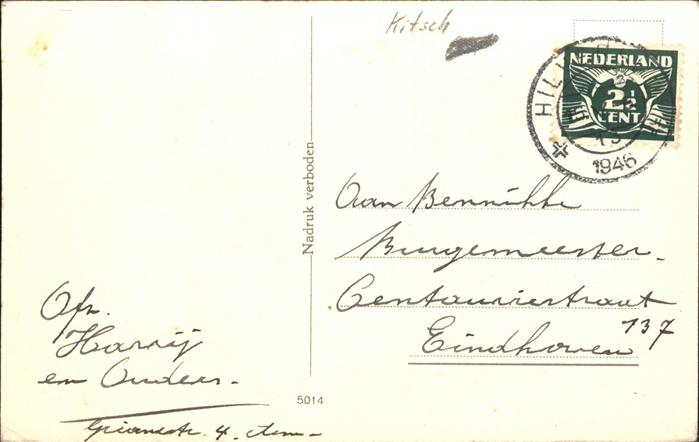 Kitsch
NEDERLAND
2½
CENT
1946
Nadruk verboden
Aan Bennikke
Burgemeester.
Centauriestraat
137
Eindhoven
Afz.
Harrij
en Ouders.
5014